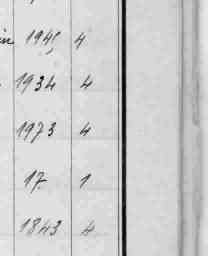 1945 4
1934 4
1973 4
17 1
1843 4